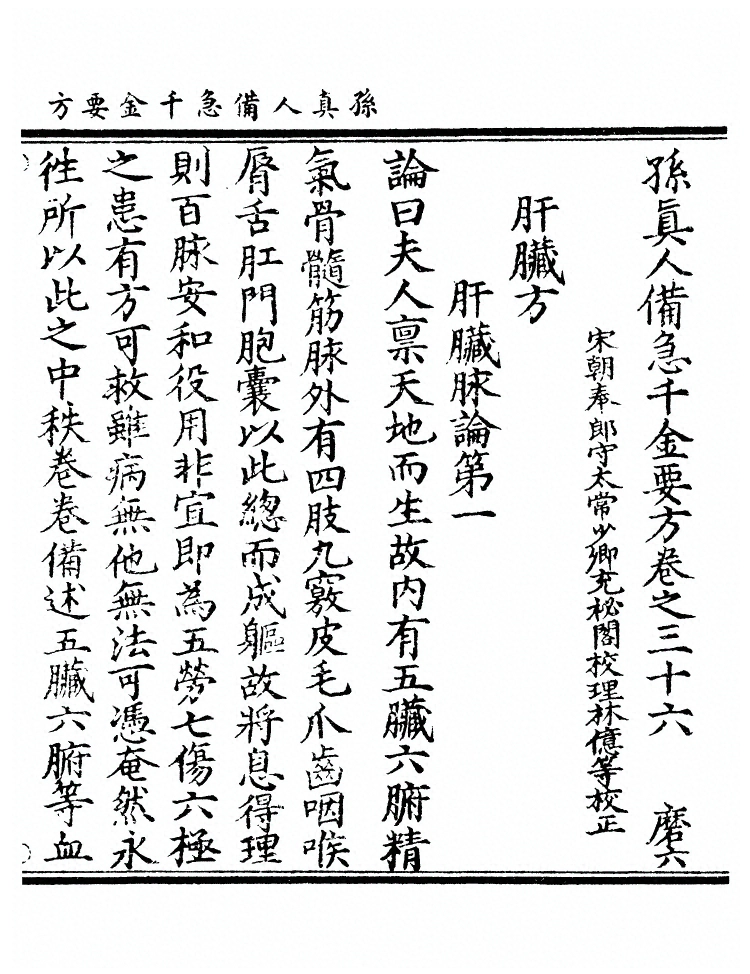 孫真人備急千金要方
孫眞人備急千金要方卷之三十六 磨六
宋朝奉郎守太常少卿充祕閣校理林億等校正
肝臟方
肝臟脉論第一
論曰夫人禀天地而生故内有五臟六腑精
氣骨髓筋脉外有四肢九竅皮毛爪齒咽喉
脣舌肛門胞囊以此總而成軀故將息得理
則百脉安和役用非宜即為五勞七傷六極
之患有方可救雖病無他無法可憑奄然永
徃所以此之中秩卷卷備述五臟六腑等血